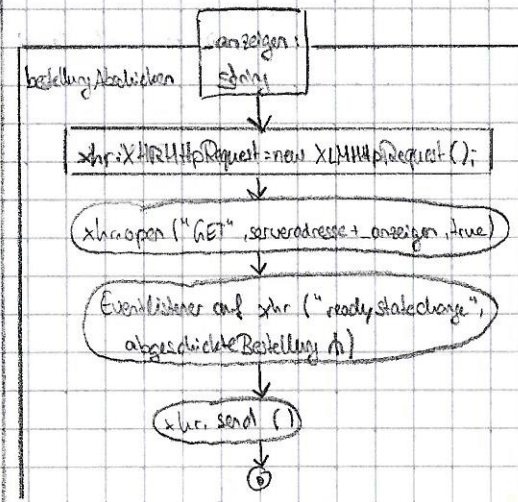 _anzeigen:
string
bestellungAbschicken
xhr: XHRMHttpRequest = new XLMHttpRequest();
xhr.open ("GET", serveradresse + _anzeigen, true)
EventListener auf xhr ("readystatechange",
abgeschickteBestellung)
xhr. send ()